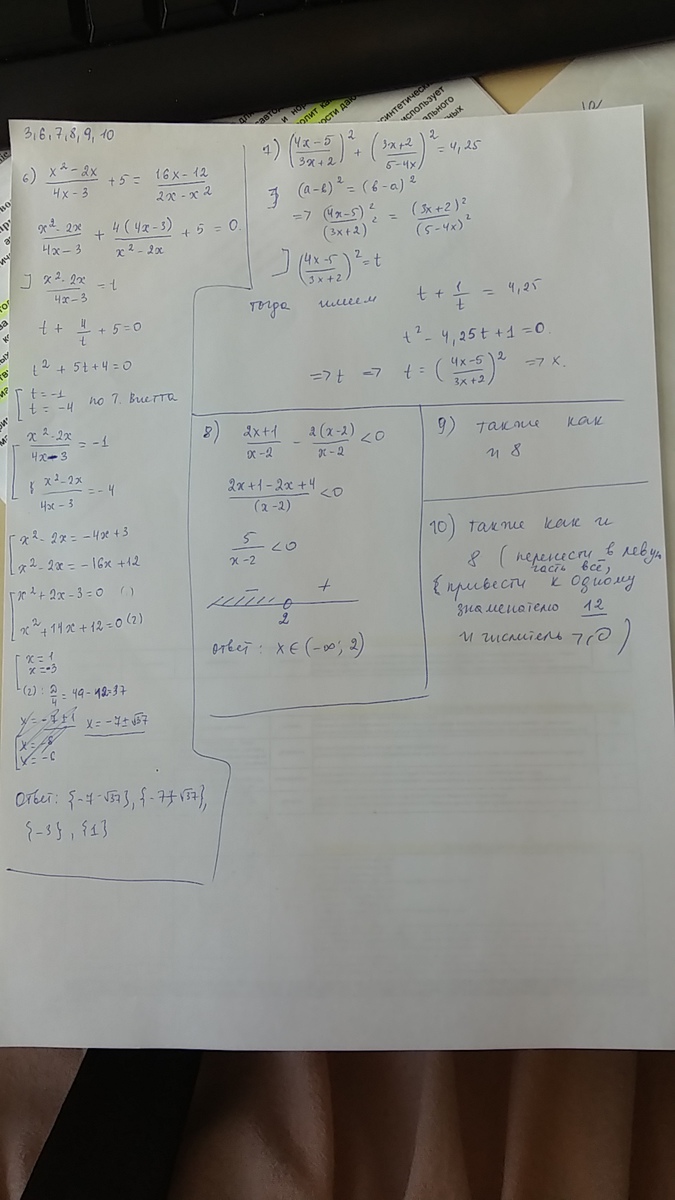 3, 6, 7, 8, 9, 10
6) (x² - 2x)/(4x - 3) + 5 = (16x - 12)/(2x - x²)
(x² - 2x)/(4x - 3) + 4(4x - 3)/(x² - 2x) + 5 = 0.
] (x² - 2x)/(4x - 3) = t
t + 4/t + 5 = 0
t² + 5t + 4 = 0
[ t = -1
t = -4 по Т. Виетта
[ (x² - 2x)/(4x - 3) = -1
(x² - 2x)/(4x - 3) = -4
[ x² - 2x = -4x + 3
x² - 2x = -16x + 12
[ x² + 2x - 3 = 0 (1)
x² + 14x + 12 = 0 (2)
[ x = 1
x = -3
(2): D/4 = 49 - 12 = 37
x = -7 ± √37
Ответ: {-7 - √37}, {-7 + √37},
{-3}, {1}
7) ((4x - 5)/(3x + 2))² + ((3x + 2)/(5 - 4x))² = 4,25
] (a - b)² = (b - a)²
=> (4x - 5)²/(3x + 2)² = (3x + 2)²/(5 - 4x)²
] ((4x - 5)/(3x + 2))² = t
тогда имеем t + 1/t = 4,25
t² - 4,25t + 1 = 0.
=> t => t = ((4x - 5)/(3x + 2))² => x.
8) (2x + 1)/(x - 2) - 2(x - 2)/(x - 2) < 0
(2x + 1 - 2x + 4)/(x - 2) < 0
5/(x - 2) < 0
- +
2
Ответ: x ∈ (-∞; 2)
9) также как
и 8
10) также как и
8 (перенести в левую
часть всё,
привести к одному
знаменателю 12
и числитель > 0)